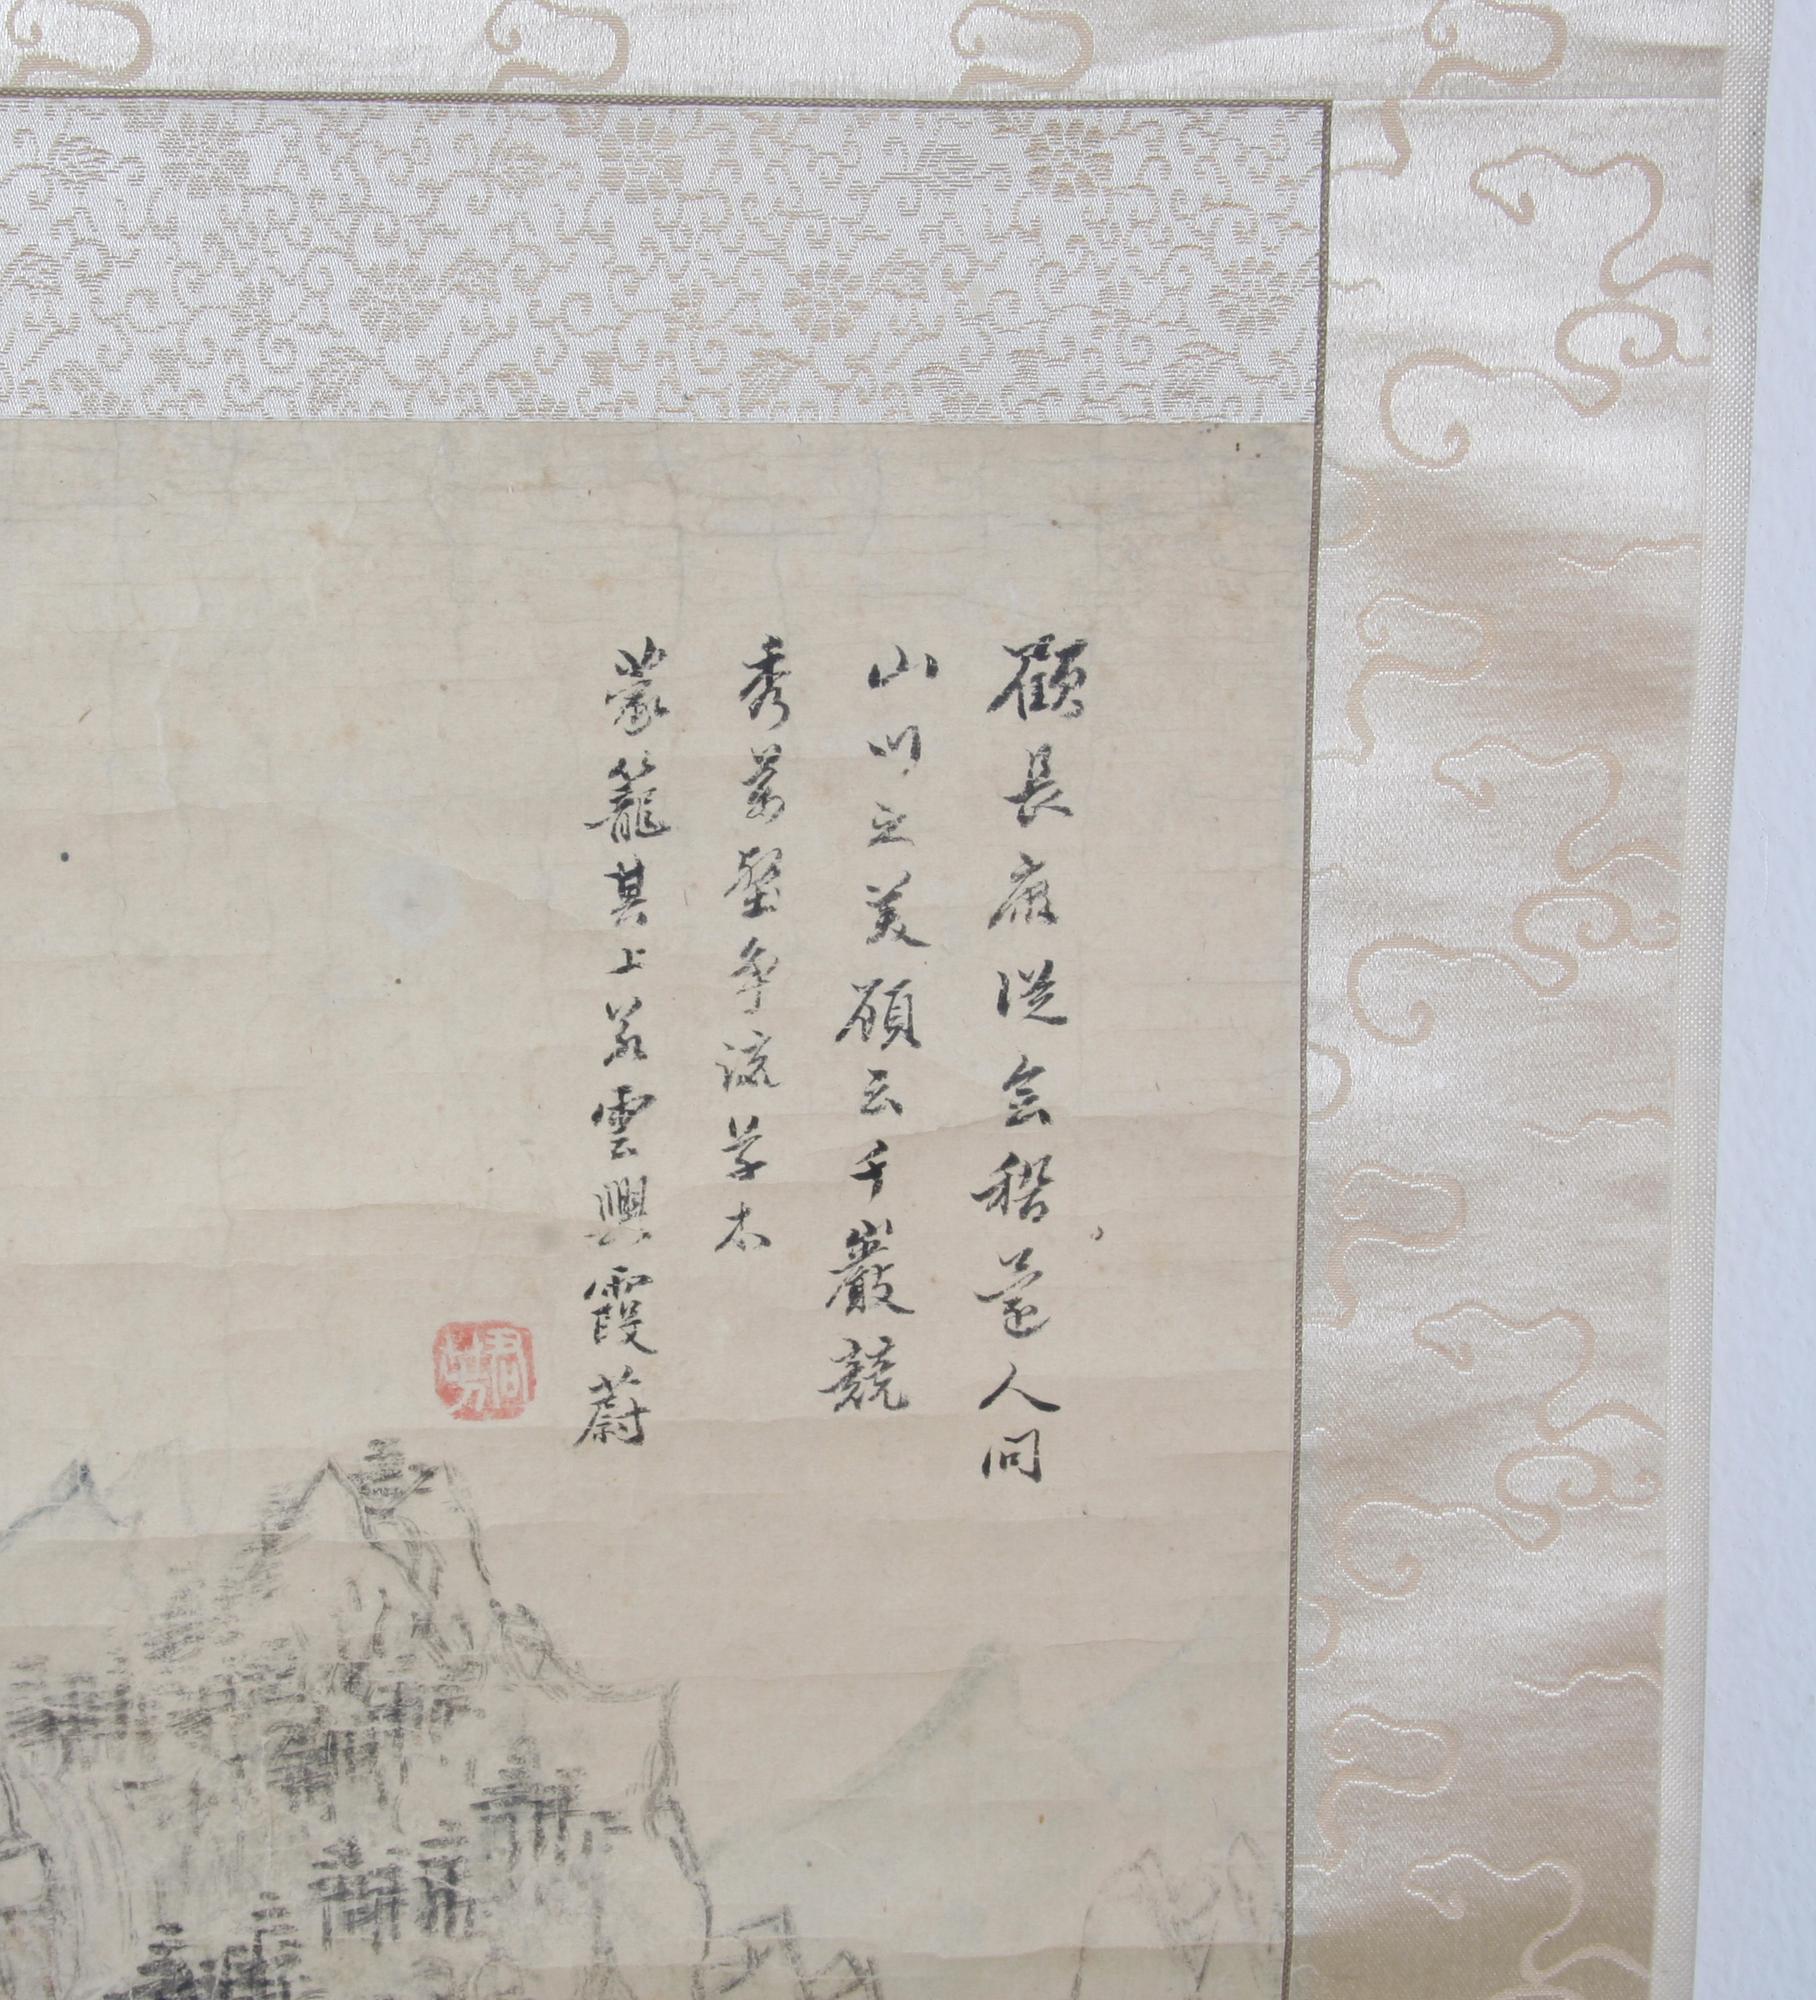 顧長康從会稽還人問
山川之美顧云千巖競
秀萬壑争流草木
蒙籠其上若雲興霞蔚